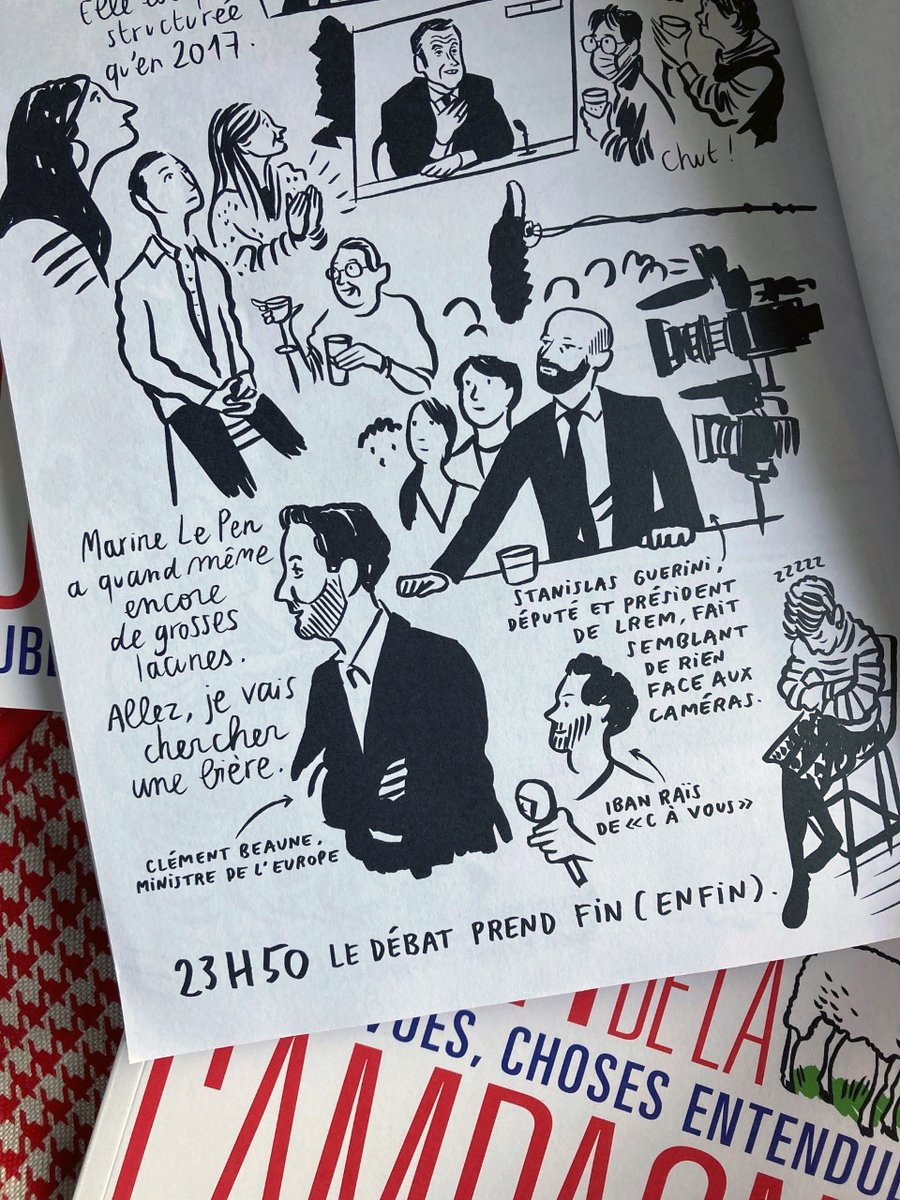 Elle est
structurée
qu'en 2017.
Chut !
Marine Le Pen
a quand même
encore
de grosses
lacunes.
Allez, je vais
chercher
une bière.
STANISLAS GUERINI,
DÉPUTÉ ET PRÉSIDENT
DE LREM, FAIT
SEMBLANT
DE RIEN
FACE AUX
CAMÉRAS.
ZZZZZ
IBAN RAÏS
DE «C À VOUS»
CLÉMENT BEAUNE,
MINISTRE DE L'EUROPE
23H50 LE DÉBAT PREND FIN (ENFIN).
UB
DE LA
VUES, CHOSES ENTENDUE
CAMPAG